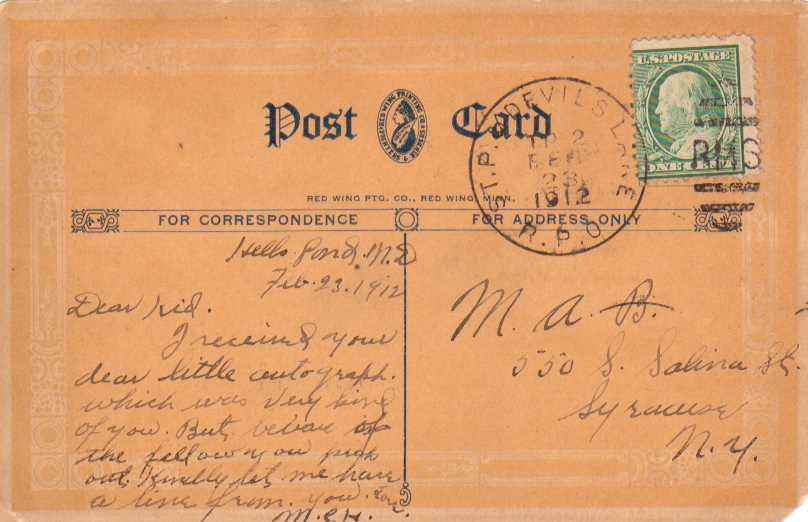 U.S. POSTAGE
Post Card
ST. P. & DEVILS LAKE
TR 2
FEB
23
1912
R.P.O.
RMS
ONE
RED WING PRINTING CO
RED WING PTG. CO., RED WING, MINN.
FOR CORRESPONDENCE
FOR ADDRESS ONLY
Hells Pond, N.D
Feb. 23. 1912
Dear kid.
I received your
dear little autograph.
which was very kind
of you. But, beware of
the fellow you pick
out. Kindly let me have
a line from you.
M.C.H.
M. A. B.
550 S. Salina St.
Syracuse
N.Y.